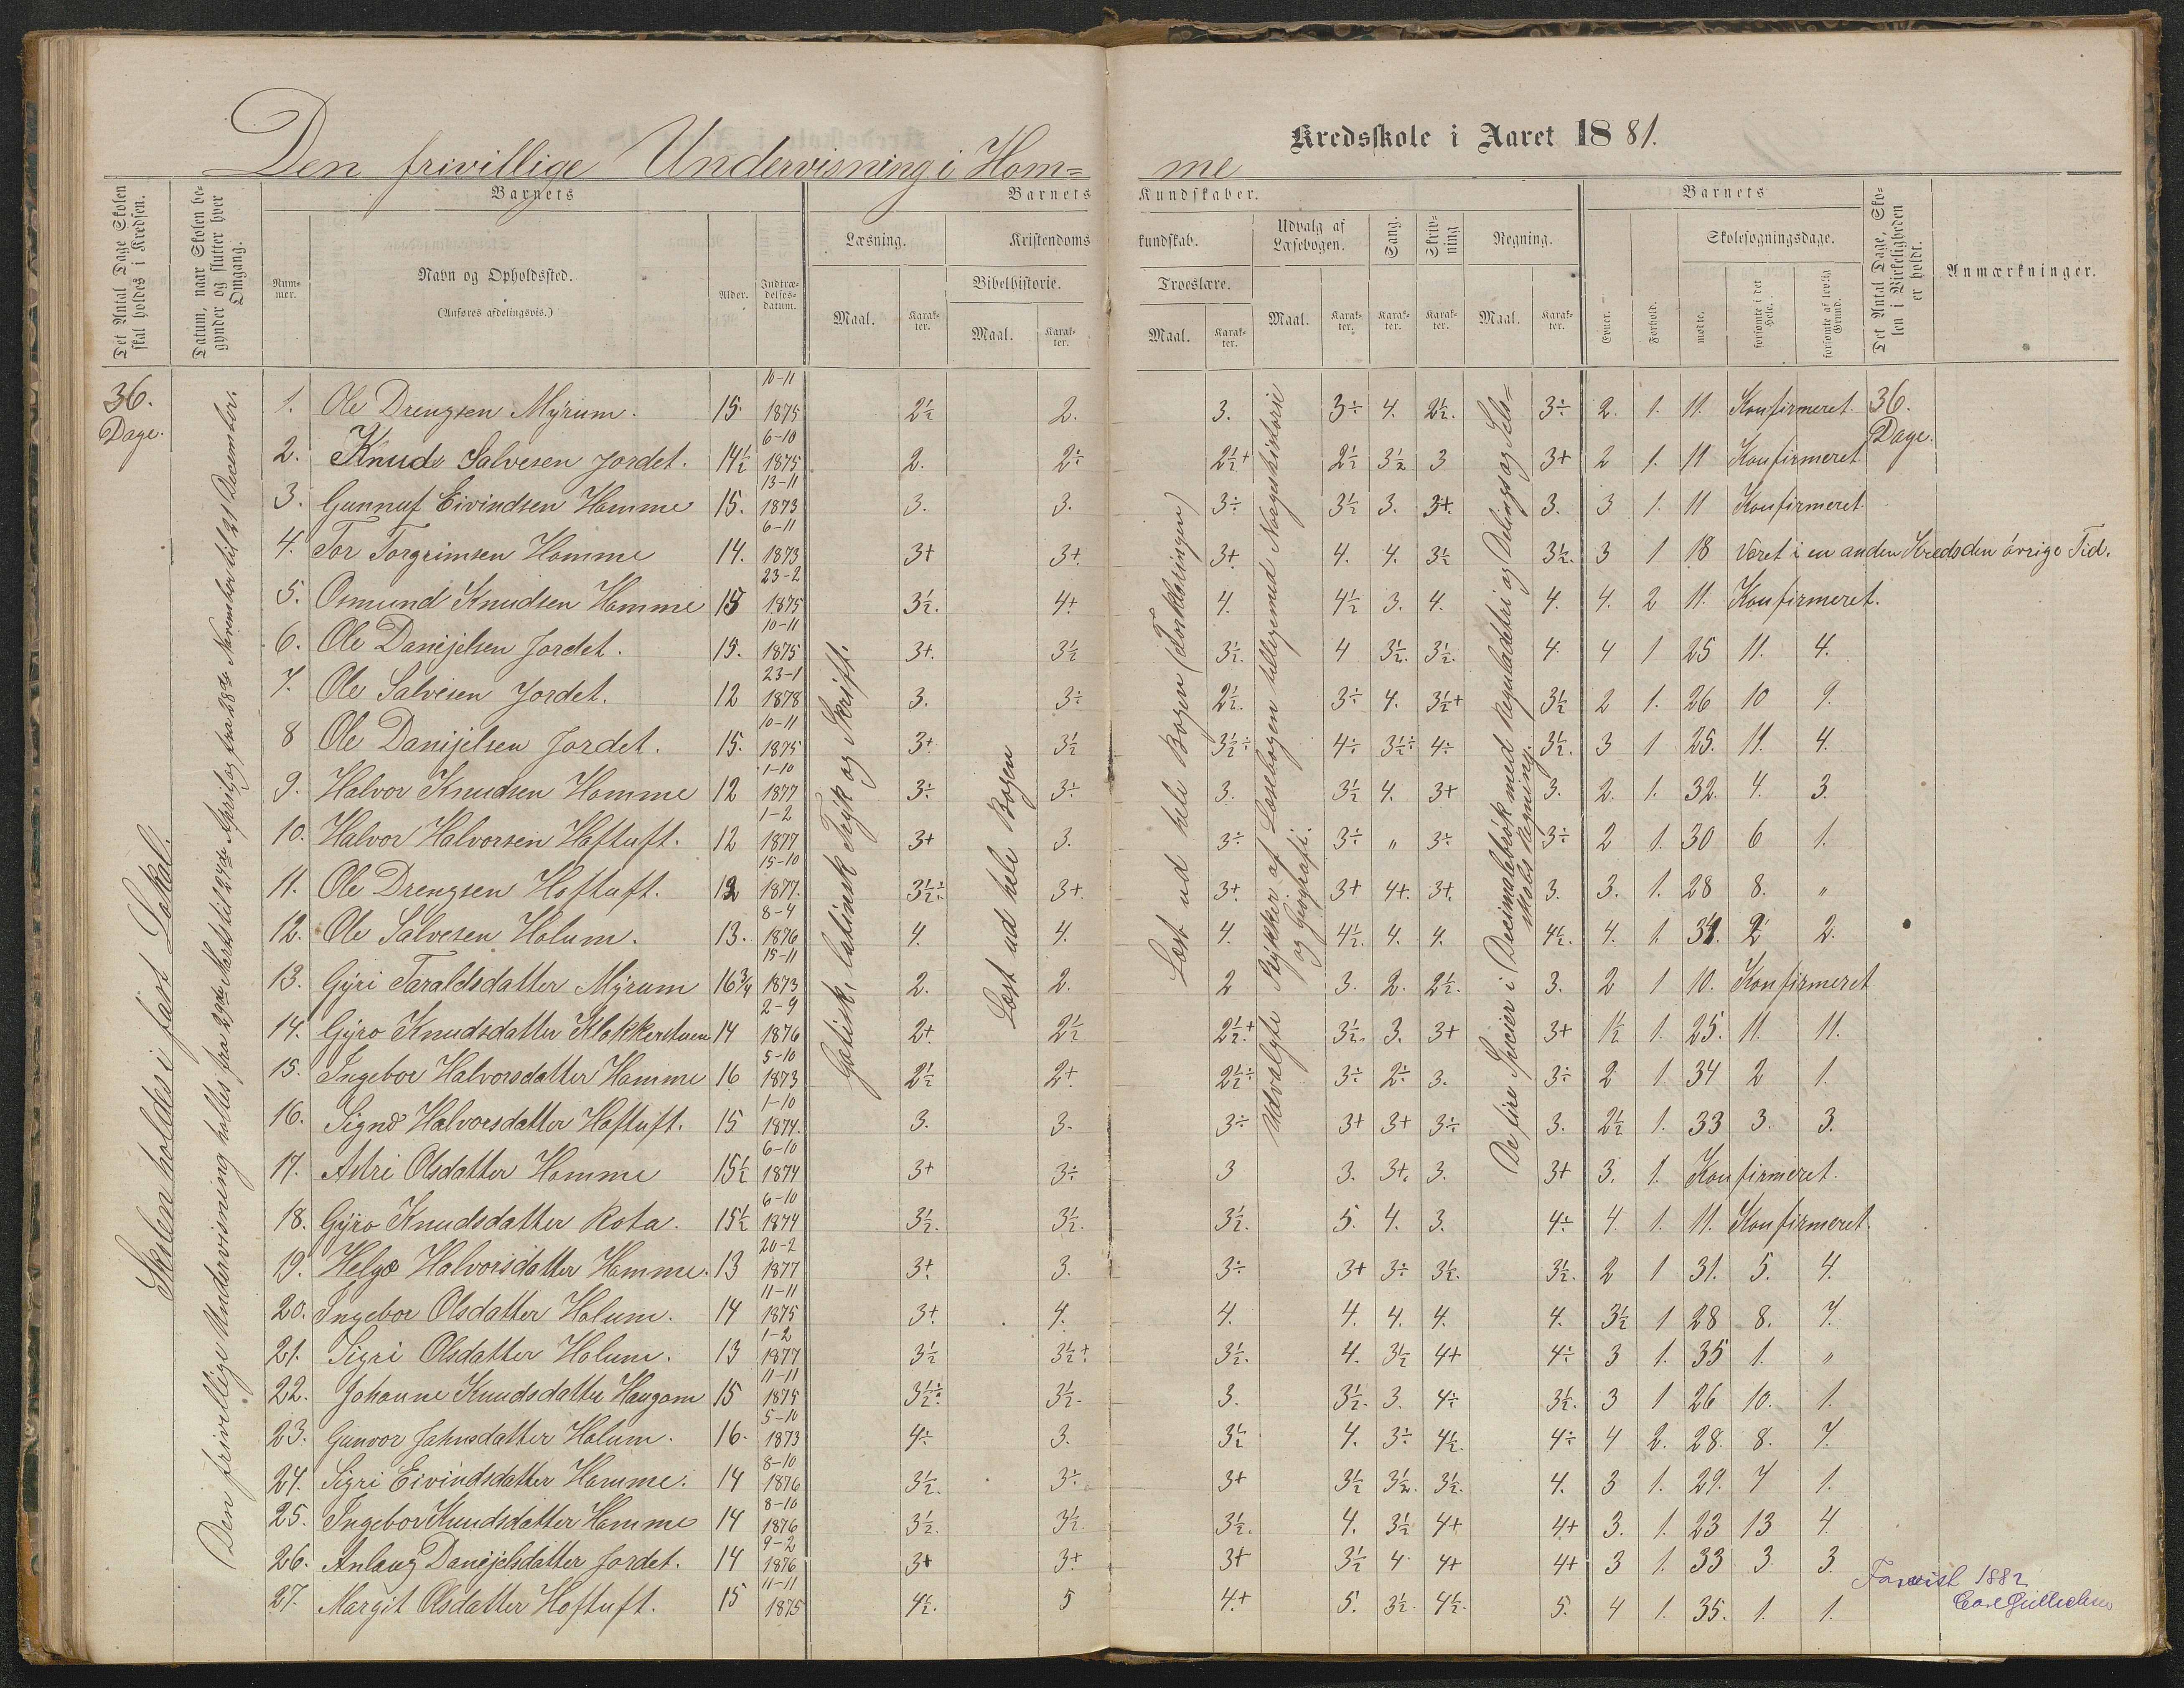 Den frivillige Undervisning i Hom= me Kredsskole i Aaret 1881.
Det Antal Dage Skolen skal holdes i Kredsen.
Datum, naar Skolen begynder og slutter hver Omgang.
Barnets
Nummer.
Navn og Opholdssted.
(Anføres afdelingsvis.)
Alder.
Indtrædelsesdatum.
Barnets Kundskaber.
Læsning.
Maal.
Karakter.
Kristendomskundskab.
Bibelhistorie.
Maal.
Karakter.
Troeslære.
Maal.
Karakter.
Udvalg af Læsebogen.
Maal.
Karakter.
Sang.
Karakter.
Skrivning
Karakter.
Regning.
Maal.
Karakter.
Barnets
Evner.
Forhold.
Skolesøgningsdage.
mødte.
forsømte i det Hele.
forsømte af lovlig Grund.
Det Antal Dage, Skolen i Virkeligheden er holdt.
Anmærkninger.
36. Dage.
Skolen holdes i fast Lokal.
Den frivillige Undervisning holtes fra 29de Marts til 24de April og fra 28de November til 21 December.
Gotisk, latinsk Tryk og Skrift.
Læst ud hele Bogen
Læst ud hele Bogen (Forklaringen)
Udvalgte Stykker af Læsebogen tilligemed Norgeshistorie og Geografi.
De fire Specier i Decimalebrøk med Reguladetri og Delings og Selskabs Regning.
36. Dage.
1. Ole Drengsen Myrum. 15. 10-11 1875 2½ 2. 3. 3÷ 4. 2½. 3÷ 2. 1. 11. Konfirmeret.
2. Knud Salvesen Jordet. 14½ 6-10 1875 2. 2÷ 2½+ 2½ 3½ 3 3+ 2 1. 11 Konfirmeret
3. Gunnuf Eivindsen Homme 15. 13-11 1873 3. 3. 3÷ 3½ 3. 3+. 3. 3 1. 11 Konfirmeret.
4. Tor Torgrimsen Homme 14. 6-11 1873 3+ 3+. 3+. 4. 4. 3½ 3½. 3 1 18 Været i en anden Kreds den øvrige Tid.
5. Osmund Knudsen Homme 15 23-2 1875 3½. 4+ 4. 4½ 3. 4. 4. 4. 2 11. Konfirmeret.
6. Ole Danijelsen Jordet. 15. 10-11 1875 3+. 3½ 3½. 4 3½. 3½. 4. 4 1 25 11. 4.
7. Ole Salvesen Jordet. 12 23-1 1878 3. 3÷ 2½. 3÷ 4. 3½+ 3½ 2 1. 26 10 9.
8 Ole Danijelsen Jordet. 15. 10-11 1875 3+. 3½ 3½÷ 4÷ 3½÷ 4÷ 3½. 3 1 25. 11. 4.
9. Halvor Knudsen Homme 12 1-10 1877 3÷ 3÷ 3. 3½ 4. 3+ 3. 2. 1. 32. 4. 3.
10. Halvor Halvorsen Hoftuft. 12 1-2 1877 3+ 3. 3÷ 3÷ " 3÷ 3÷ 2 1. 30 6 1.
11. Ole Drengsen Hoftuft. 12 15-10 1877. 3½÷ 3+. 3+. 3+ 4+. 3+. 3. 3. 1. 28 8. "
12. Ole Salvesen Holum. 13. 8-4 1876 4. 4. 4. 4½. 4. 4. 4½. 4. 1. 34. 2 2.
13. Gyri Taraldsdatter Myrum 16¾ 15-11 1873 2. 2. 2 3. 2. 2½. 3. 2 1 10. Konfirmeret
14. Gyro Knudsdatter Klokkerstuen 14 2-9 1876 2+ 2½ 2½+ 3½. 3. 3+ 3+ 1½ 1. 25. 11. 11.
15. Ingebor Halvorsdatter Homme 16 5-10 1873 2½ 2+ 2½÷ 3÷ 2÷ 3. 3÷ 2 1. 34 2 1.
16. Signe Halvorsdatter Hoftuft. 15 1-10 1874. 3. 3. 3÷ 3+ 3+ 3÷ 3. 2½ 1. 33 3. 3.
17. Astri Olsdatter Homme 15½ 6-10 1874 3+ 3÷ 3 3. 3+. 3. 3+ 3. 1. Konfirmeret.
18. Gyro Knudsdatter Rota. 15½ 6-10 1874 3½. 3½. 3½. 5. 4. 3. 4÷ 4. 1. 11. Konfirmeret.
19. Helge Halvorsdatter Homme. 13 20-2 1877 3+ 3. 3÷ 3+ 3÷ 3½. 3½. 2 1 31. 5. 4.
20. Ingebor Olsdatter Holum. 14 11-11 1875 3+. 4. 4. 4. 4. 4. 4. 3½ 1 28 8. 7.
21. Sigri Olsdatter Holum. 13 1-2 1877 3½ 3½+ 3½. 4. 3½ 4+ 4÷ 3 1. 35 1. "
22. Johanne Knudsdatter Haugom 15 11-11 1875 3½÷ 3½. 3. 3½. 3. 4÷ 3½. 3 1 26 10. 1.
23. Gunvor Jahnsdatter Holum. 16. 5-10 1873 4÷ 3. 3½ 4. 3÷ 4½. 4÷ 4 2. 28. 8. 7.
24. Sigri Eivindsdatter Homme. 14 8-10 1876 3½. 3÷ 3+ 3½ 3½. 3½. 4. 3 1. 29. 7 1.
25. Ingebor Knudsdatter Homme 14 8-10 1876 3½. 3½. 3½. 4. 3½ 4+ 4+ 3. 1. 23 13 4.
26. Anlaug Danijelsdatter Jordet. 14 9-2 1876 3+ 3+. 3+ 3½ 4 4+ 4+ 3 1. 33 3. 3.
27. Margit Olsdatter Hoftuft. 15 11-11 1875 4½. 5 4+ 5. 3½. 4½. 5. 4 1. 35. 1. 1.
Forevist 1882
Carl